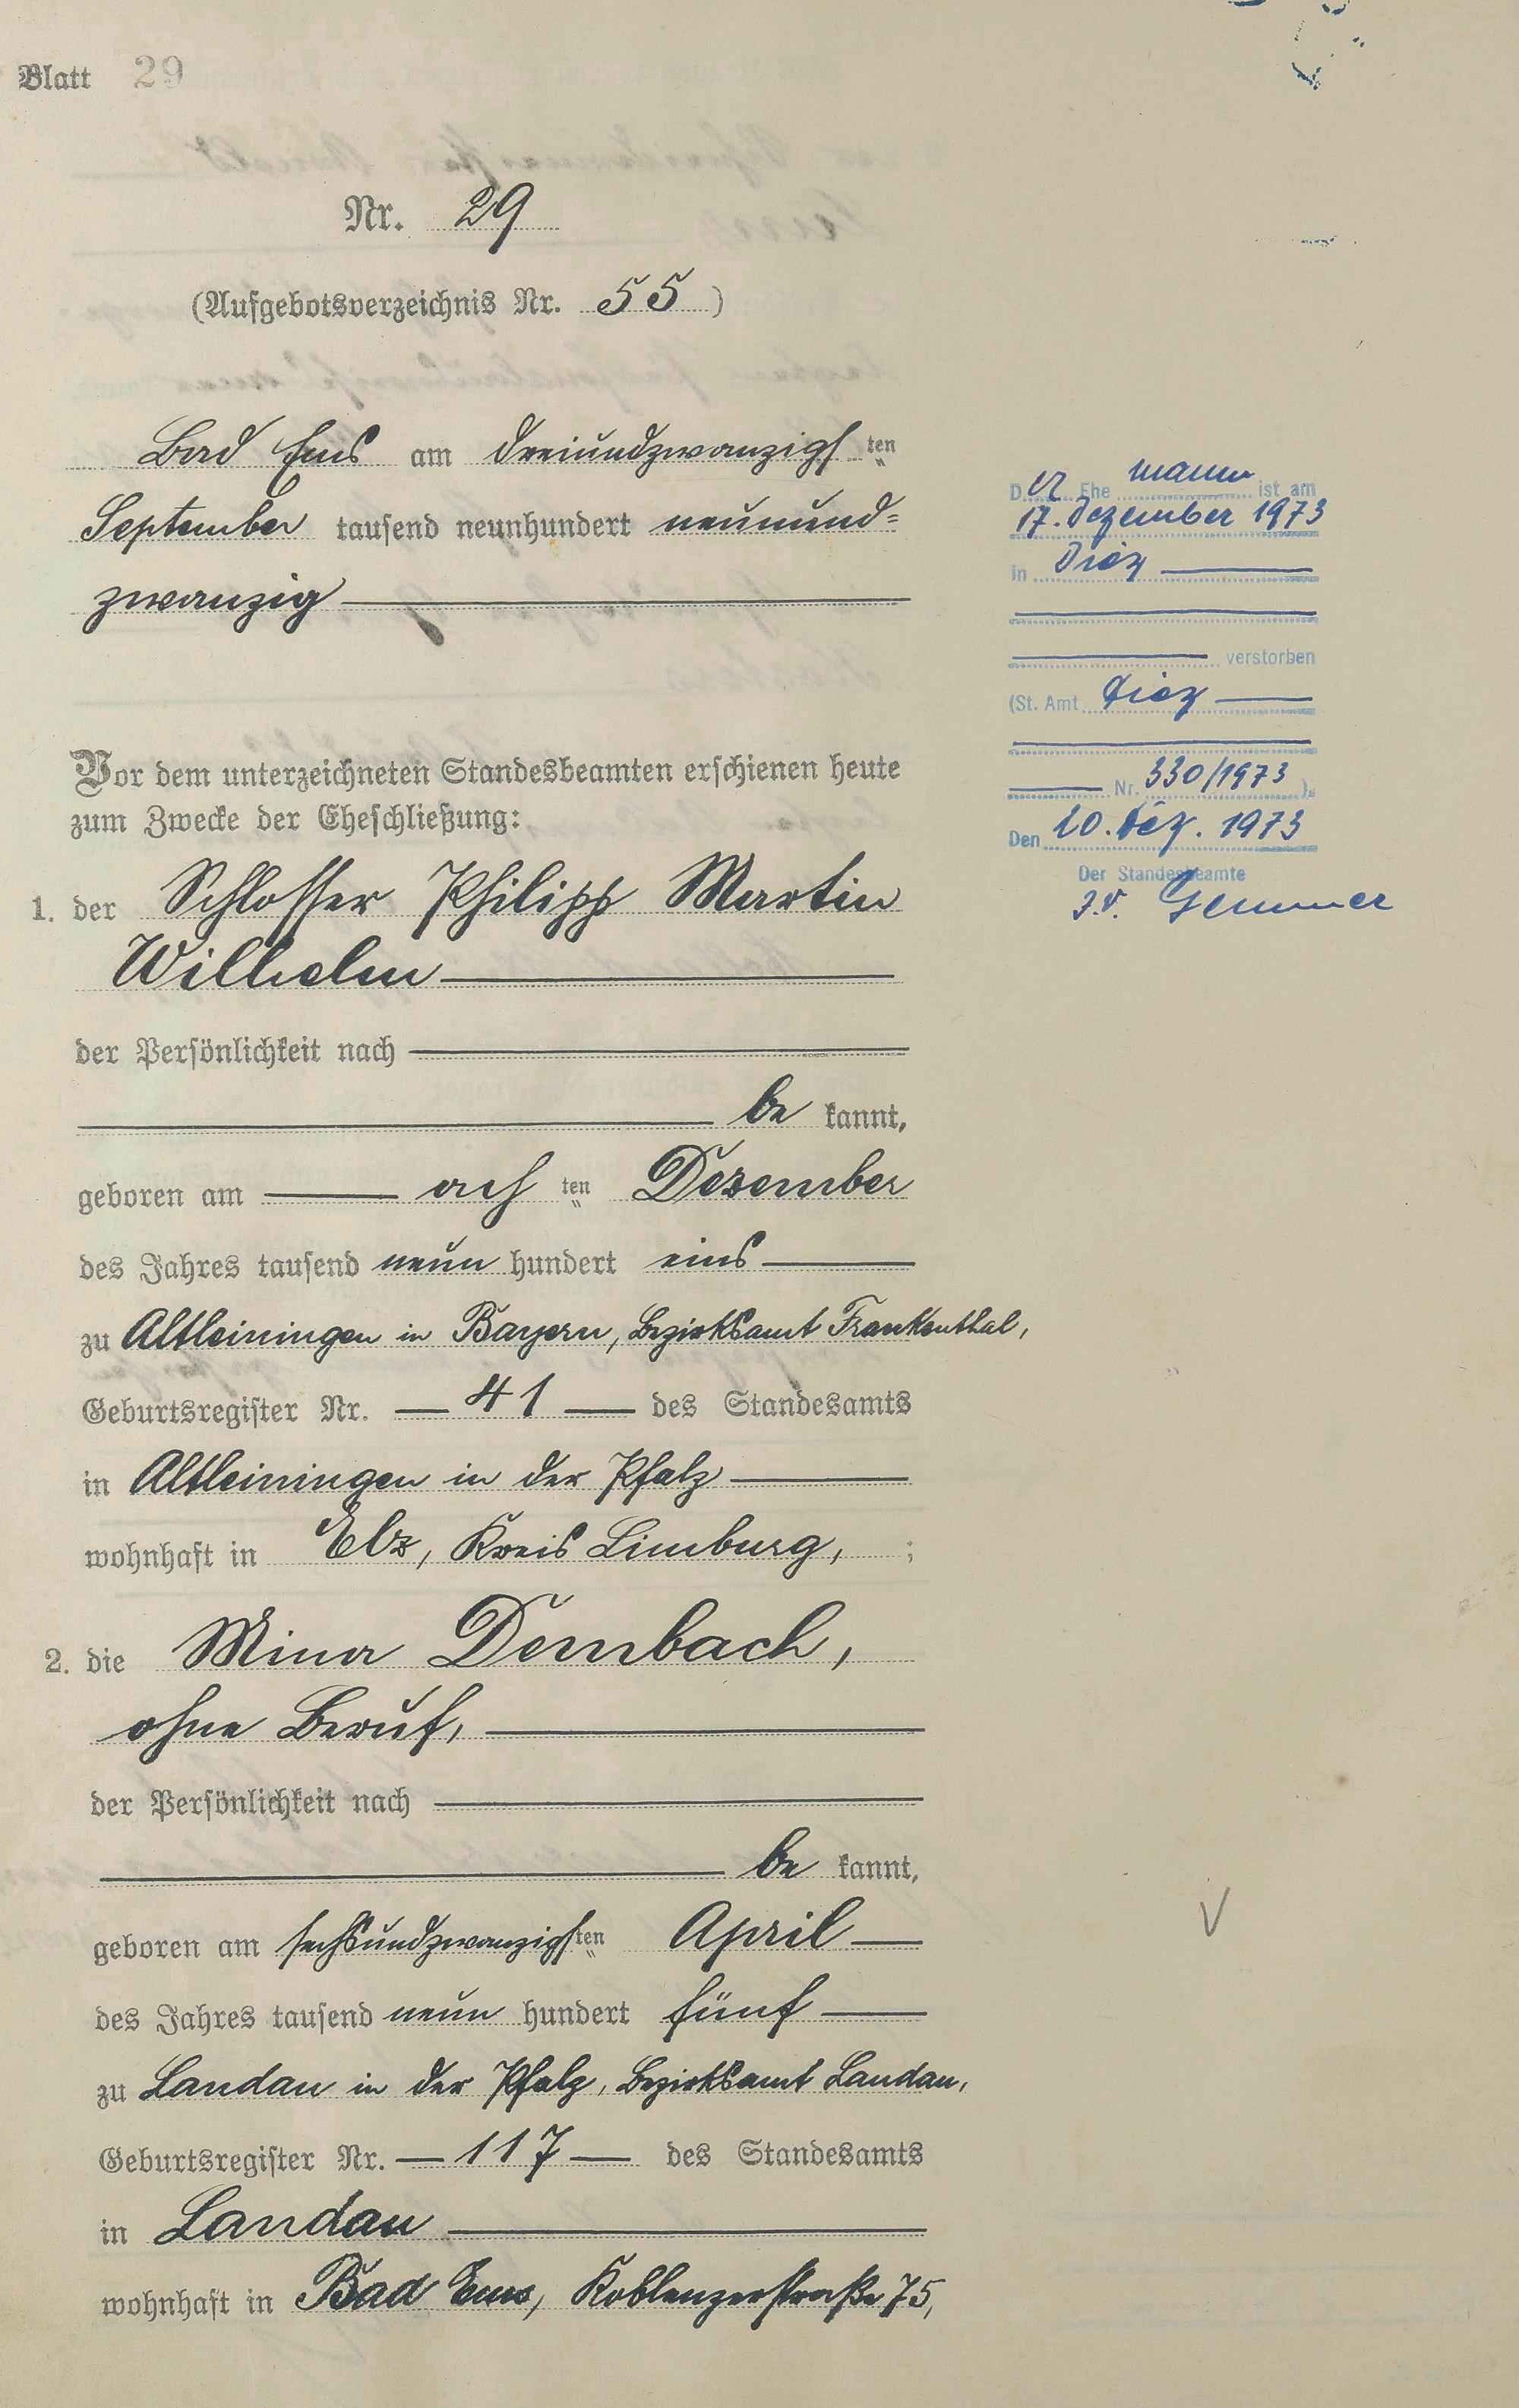 Blatt 29
Nr. 29
(Aufgebotsverzeichnis Nr. 55)
Bad Ems am dreiundzwanzigsten
September tausend neunhundert neunund=
zwanzig
Vor dem unterzeichneten Standesbeamten erschienen heute
zum Zwecke der Eheschließung:
1. der Schlosser Philipp Martin
Wilhelm
der Persönlichkeit nach
be kannt,
geboren am achten Dezember
des Jahres tausend neun hundert eins
zu Altleiningen in Bayern, Bezirksamt Frankenthal,
Geburtsregister Nr. 41 des Standesamts
in Altleiningen in der Pfalz
wohnhaft in Elz, Kreis Limburg, ;
2. die Mina Dembach,
ohne Beruf,
der Persönlichkeit nach
be kannt,
geboren am sechsundzwanzigsten April
des Jahres tausend neun hundert fünf
zu Landau in der Pfalz, Bezirksamt Landau,
Geburtsregister Nr. 117 des Standesamts
in Landau
wohnhaft in Bad Ems, Koblenzerstraße 75,
Der Ehe mann ist am
17. Dezember 1973
in Diez
verstorben
(St. Amt Diez
Nr. 330/1973).
Den 20. Dez. 1973
Der Standesbeamte
J.V. Gemmer